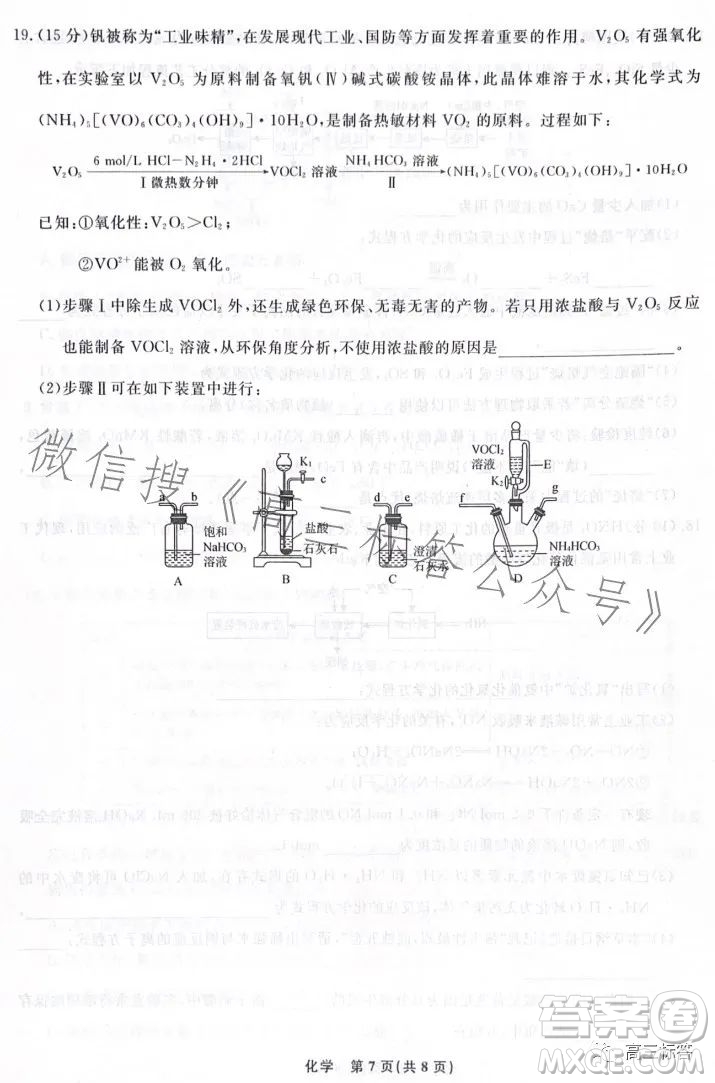 19.(15 分)钒被称为“工业味精”,在发展现代工业、国防等方面发挥着重要的作用。V₂O₅ 有强氧化
性,在实验室以 V₂O₅ 为原料制备氧钒(Ⅳ)碱式碳酸铵晶体,此晶体难溶于水,其化学式为
(NH₄)₅[(VO)₆(CO₃)₄(OH)₉]·10H₂O,是制备热敏材料 VO₂ 的原料。过程如下:
V₂O₅ 6 mol/L HCl－N₂H₄·2HCl Ⅰ微热数分钟 VOCl₂ 溶液 NH₄HCO₃ 溶液 Ⅱ (NH₄)₅[(VO)₆(CO₃)₄(OH)₉]·10H₂O
已知:①氧化性:V₂O₅>Cl₂;
②VO²⁺能被 O₂ 氧化。
(1)步骤Ⅰ中除生成 VOCl₂ 外,还生成绿色环保、无毒无害的产物。若只用浓盐酸与 V₂O₅ 反应
也能制备 VOCl₂ 溶液,从环保角度分析,不使用浓盐酸的原因是________________。
(2)步骤Ⅱ可在如下装置中进行:
a b
饱和
NaHCO₃
溶液
A
K₁
c
盐酸
石灰石
B
d e
澄清
石灰水
C
VOCl₂
溶液
E
K₂
NH₄HCO₃
溶液
D
微信搜《高三标答公众号》
化学 第 7 页(共 8 页)
答案圈
高三标答
MXQE.COM